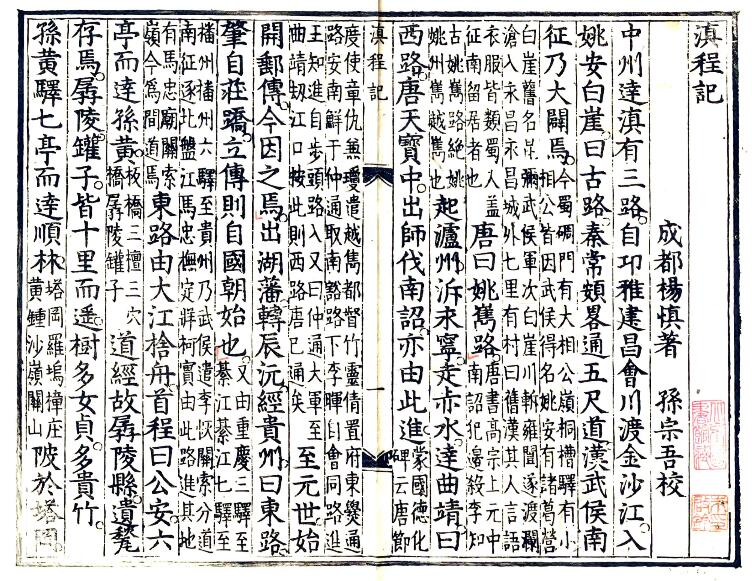 滇程記
成都楊慎著　孫宗吾校
中州達滇有三路自卭雅建昌會川渡金沙江入
姚安白崖曰古路秦常頞畧通五尺道漢武侯南
征乃大闢焉
今蜀碉門有大相公嶺桐槽驛有小
相公皆因武侯得名姚安有諸葛營
白崖舊名昆彌武侯軍次白崖川斬雍闓遂渡瀾
滄入永昌永昌城外七里有村曰舊漢其人言語
衣服皆類蜀人蓋
征南留居者也
唐曰姚嶲路
唐書高宗上元中
南詔犯邊殺李知
古姚嶲路絕姚
州嶲越嶲也
起瀘州泝永寧走赤水達曲靖曰
西路唐天寶中出師伐南詔亦由此進
蒙國德化
碑云唐節
滇程記
一
度使章仇兼瓊遣越嶲都督竹靈倩置府東爨通
路安南鮮于仲通取南谿路下李暉自會同路進
王知進自步頭路入又曰仲通大軍至
曲靖刼江口按此則西路唐已通矣
至元世始
開郵傳今因之焉出湖藩轉辰沅經貴州曰東路
肇自莊蹻立傳則自國朝始也
又由重慶三驛至
綦江綦江七驛至
播州播州六驛至貴州乃武侯遣李恢關索分道
南征逐北盤江馬忠撫定牂柯實由此路進其地
有馬忠廟關索
嶺今為間道焉
東路由大江捨舟首程曰公安六
亭而達孫黃
板橋三檀三穴
橋孱陵鑵子
道經故孱陵縣遺甃
存焉孱陵鑵子皆十里而遥樹多女貞多貴竹
孫黃驛七亭而達順林
塔岡羅塢樟庄
黄鍾沙嶺關山
陂於塔岡